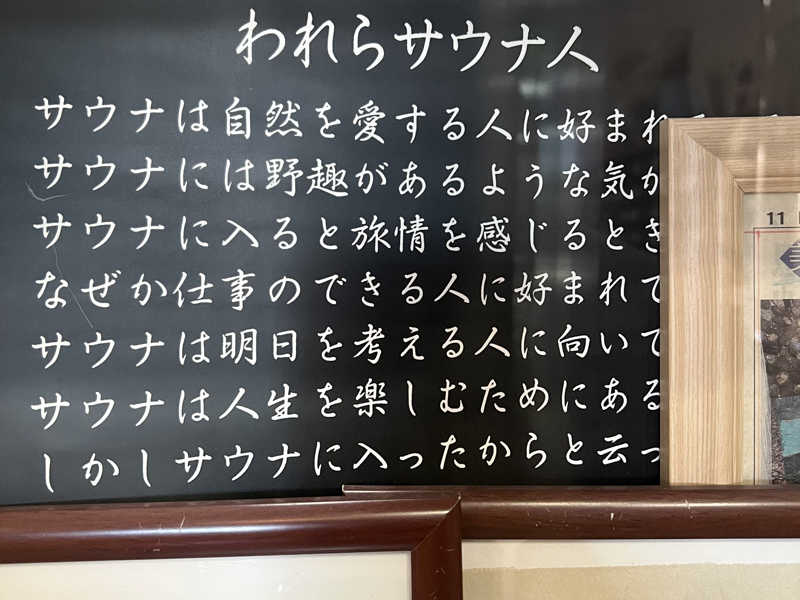 われらサウナ人
サウナは自然を愛する人に好まれ
サウナには野趣があるような気が
サウナに入ると旅情を感じるとき
なぜか仕事のできる人に好まれて
サウナは明日を考える人に向いて
サウナは人生を楽しむためにある
しかしサウナに入ったからと云っ
11